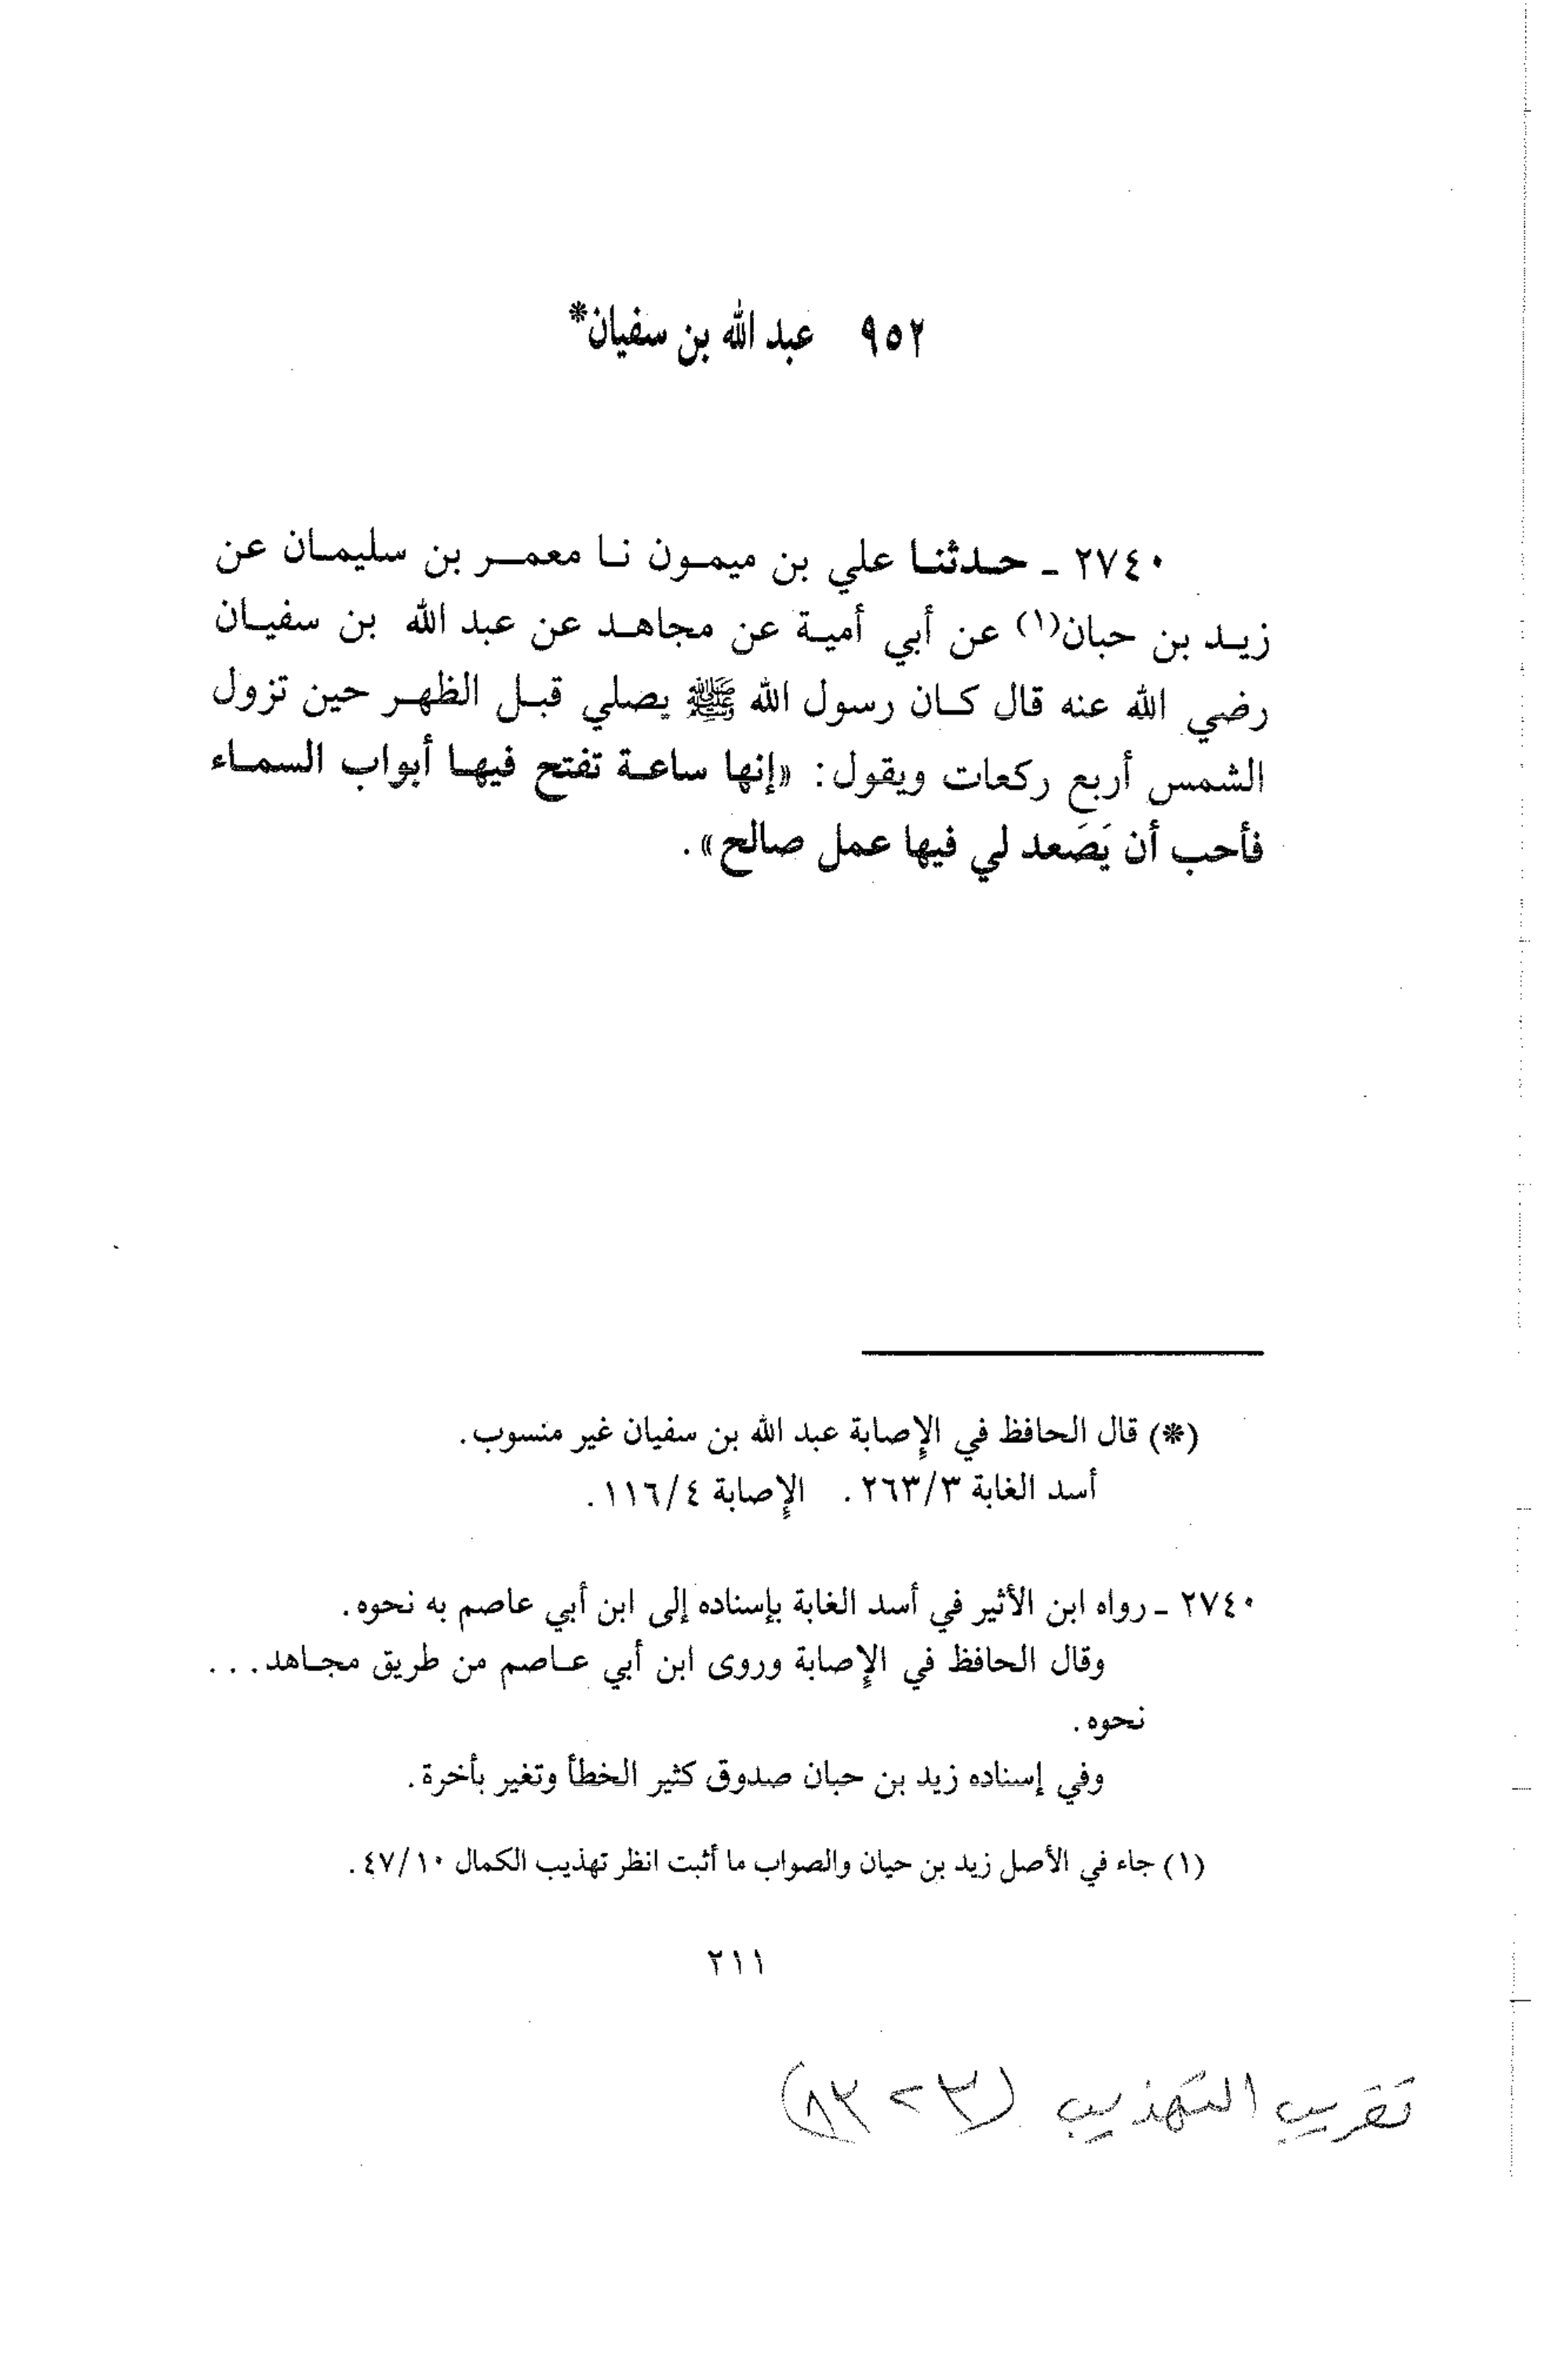 ٩٥٢ عبد الله بن سفيان*
٢٧٤٠ ـ حـدثنـا علي بن ميمـون نـا معمـر بن سليمـان عن
زيـد بن حبان(١) عن أبي أميـة عن مجاهـد عن عبد الله بن سفيـان
رضي الله عنه قال كـان رسول الله ﷺ يصلي قبـل الظهـر حين تزول
الشمس أربع ركعات ويقول: «إنها ساعـة تفتح فيهـا أبواب السمـاء
فأحب أن يَصَعد لي فيها عمل صالح».
(*) قال الحافظ في الإصابة عبد الله بن سفيان غير منسوب.
أسد الغابة ٢٦٣/٣. الإصابة ١١٦/٤.
٢٧٤٠ ـ رواه ابن الأثير في أسد الغابة بإسناده إلى ابن أبي عاصم به نحوه.
وقال الحافظ في الإصابة وروى ابن أبي عـاصم من طريق مجـاهد...
نحوه.
وفي إسناده زيد بن حبان صدوق كثير الخطأ وتغير بأخرة.
(١) جاء في الأصل زيد بن حيان والصواب ما أثبت انظر تهذيب الكمال ٤٧/١٠.
٢١١
تقريب التهذيب